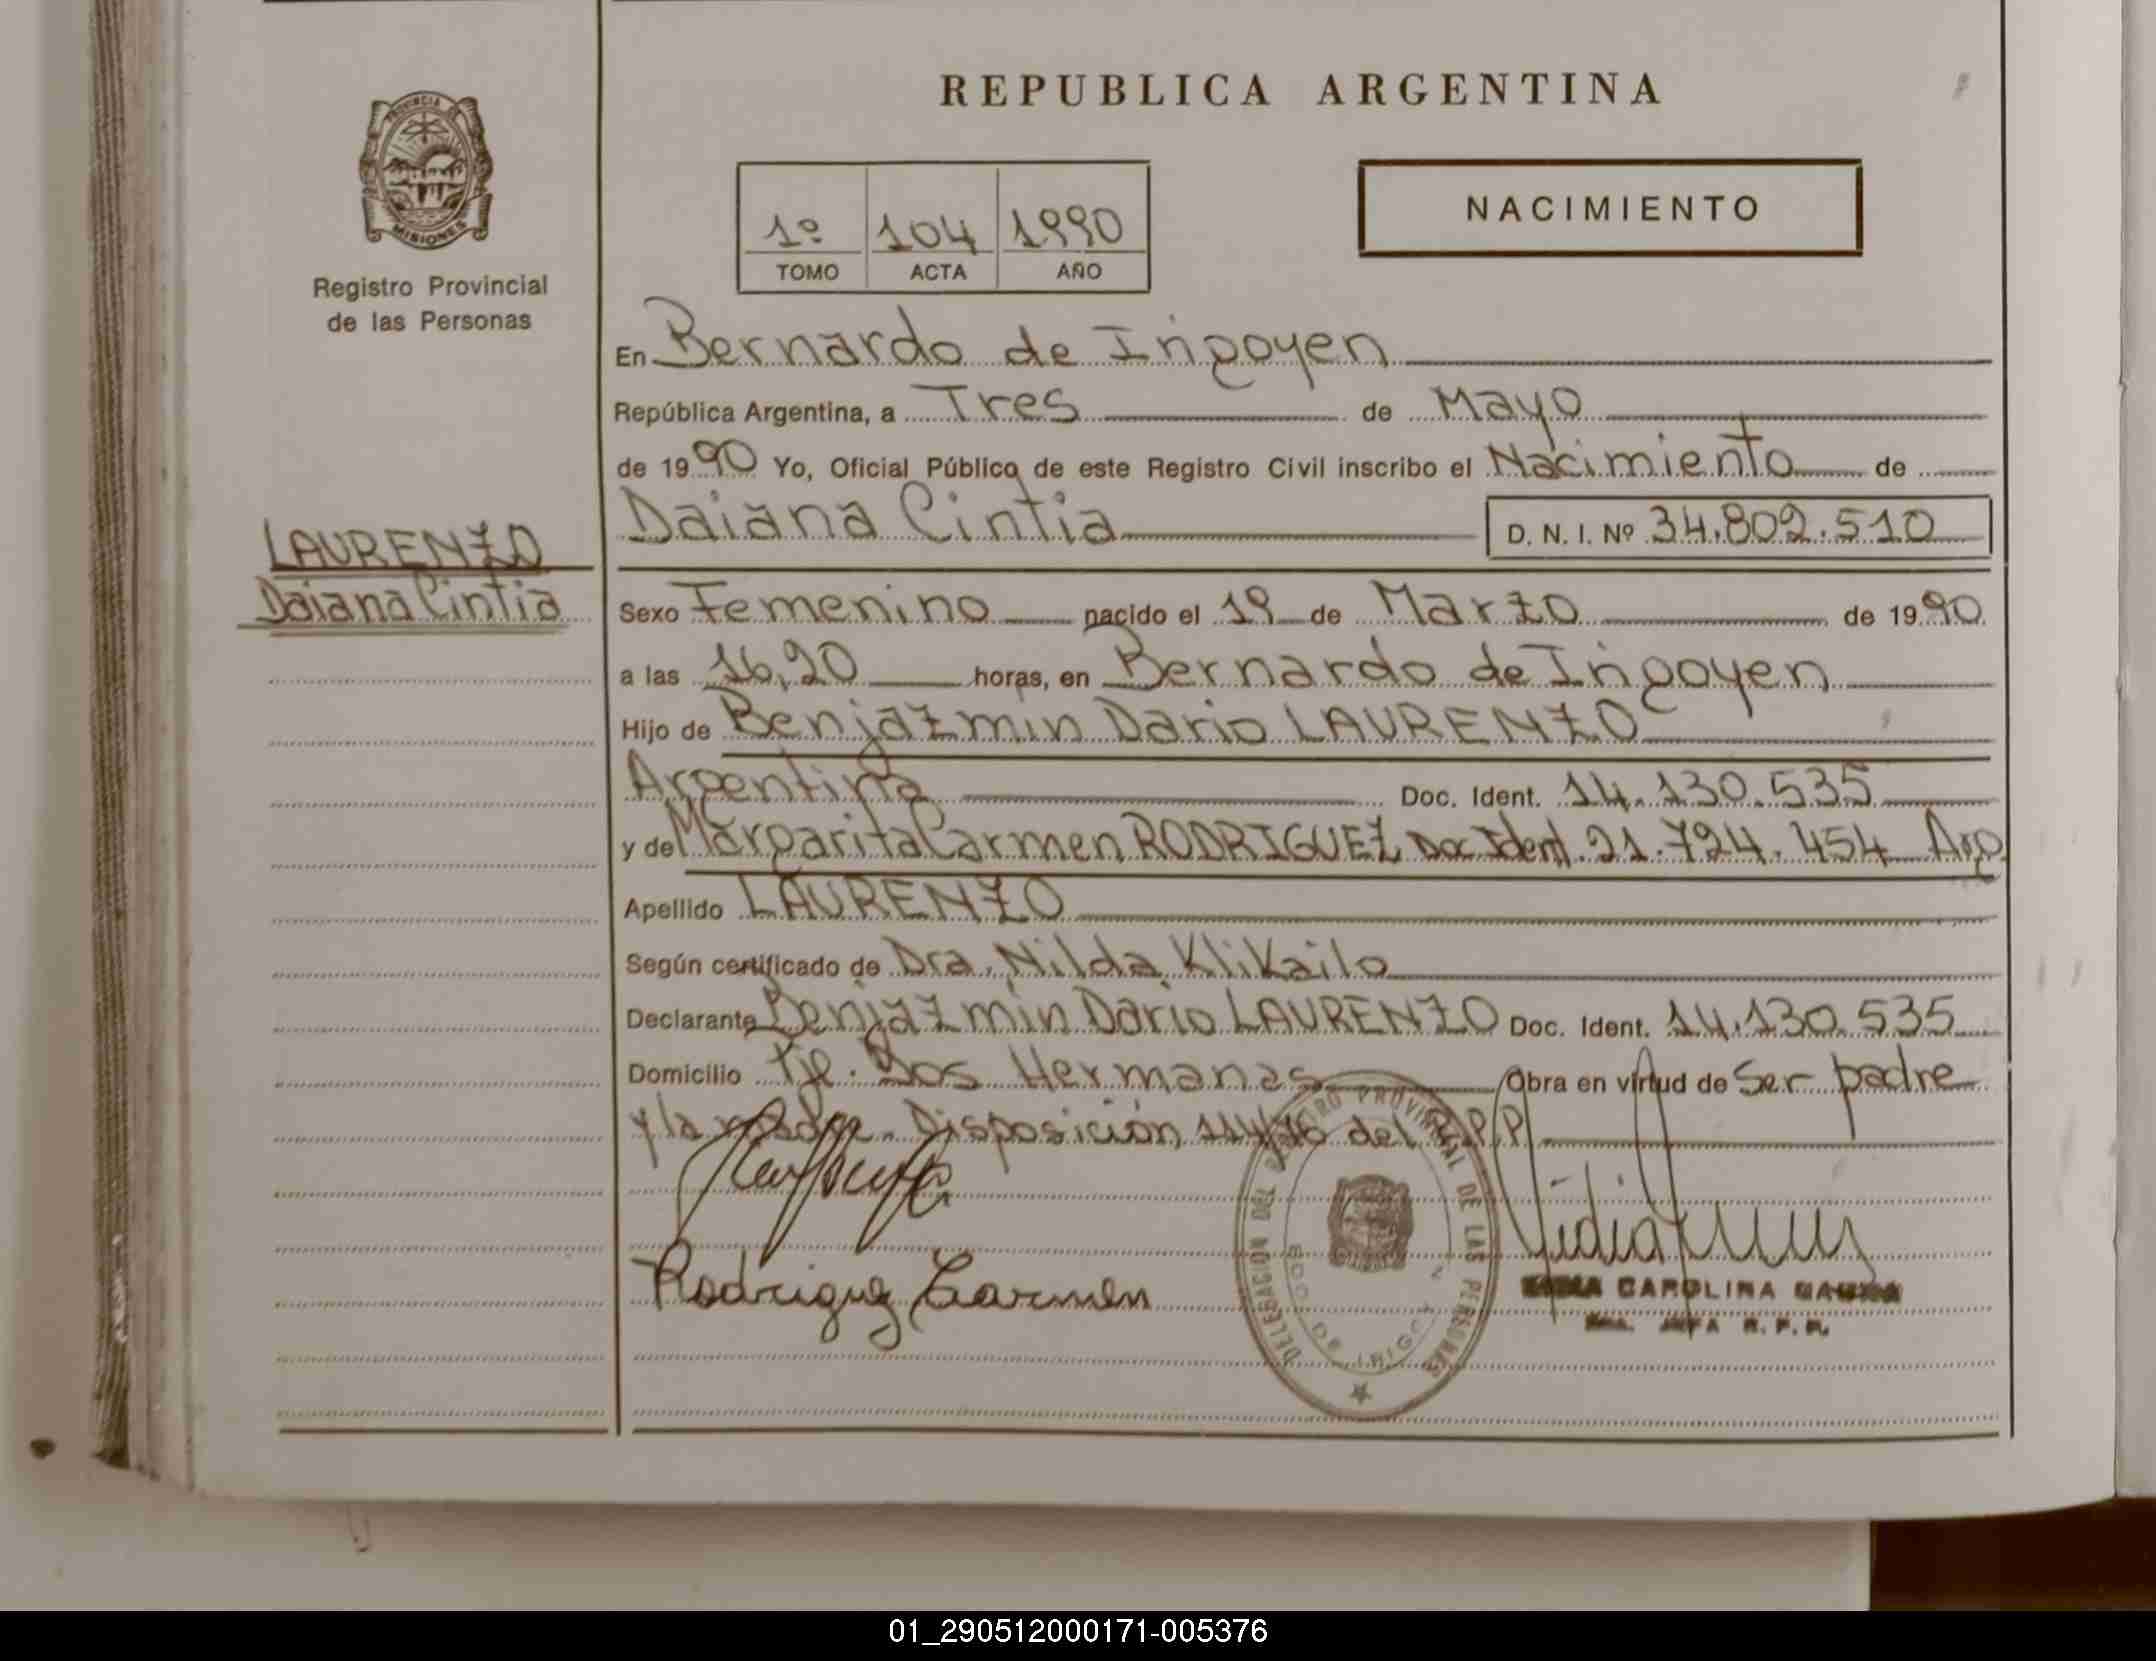 REPUBLICA ARGENTINA
PROVINCIA DE
MISIONES
Registro Provincial
de las Personas
1º 104 1990
TOMO ACTA AÑO
NACIMIENTO
En Bernardo de Irigoyen
República Argentina, a Tres de Mayo
de 1990 Yo, Oficial Público de este Registro Civil inscribo el Nacimiento de
Daiana Cintia D. N. I. Nº 34.802.510
LAURENZO
Daiana Cintia
Sexo Femenino nacido el 19 de Marzo de 1990
a las 16,20 horas, en Bernardo de Irigoyen
Hijo de Benjazmin Dario LAURENZO
Argentina Doc. Ident. 14.130.535
y de Margarita Carmen RODRIGUEZ Doc Ident. 21.724.454 Arg
Apellido LAURENZO
Según certificado de Dra. Nilda Klikailo
Declarante Benjazmin Dario LAURENZO Doc. Ident. 14.130.535
Domicilio Pje. Dos Hermanas Obra en virtud de Ser padre
y la Disposición 114/76 del R.P.P.
Rodriguez Carmen
DELEGACION DEL REGISTRO PROVINCIAL DE LAS PERSONAS
BDO DE IRIGOYEN
CAROLINA
JEFA R.P.P.
01_290512000171-005376